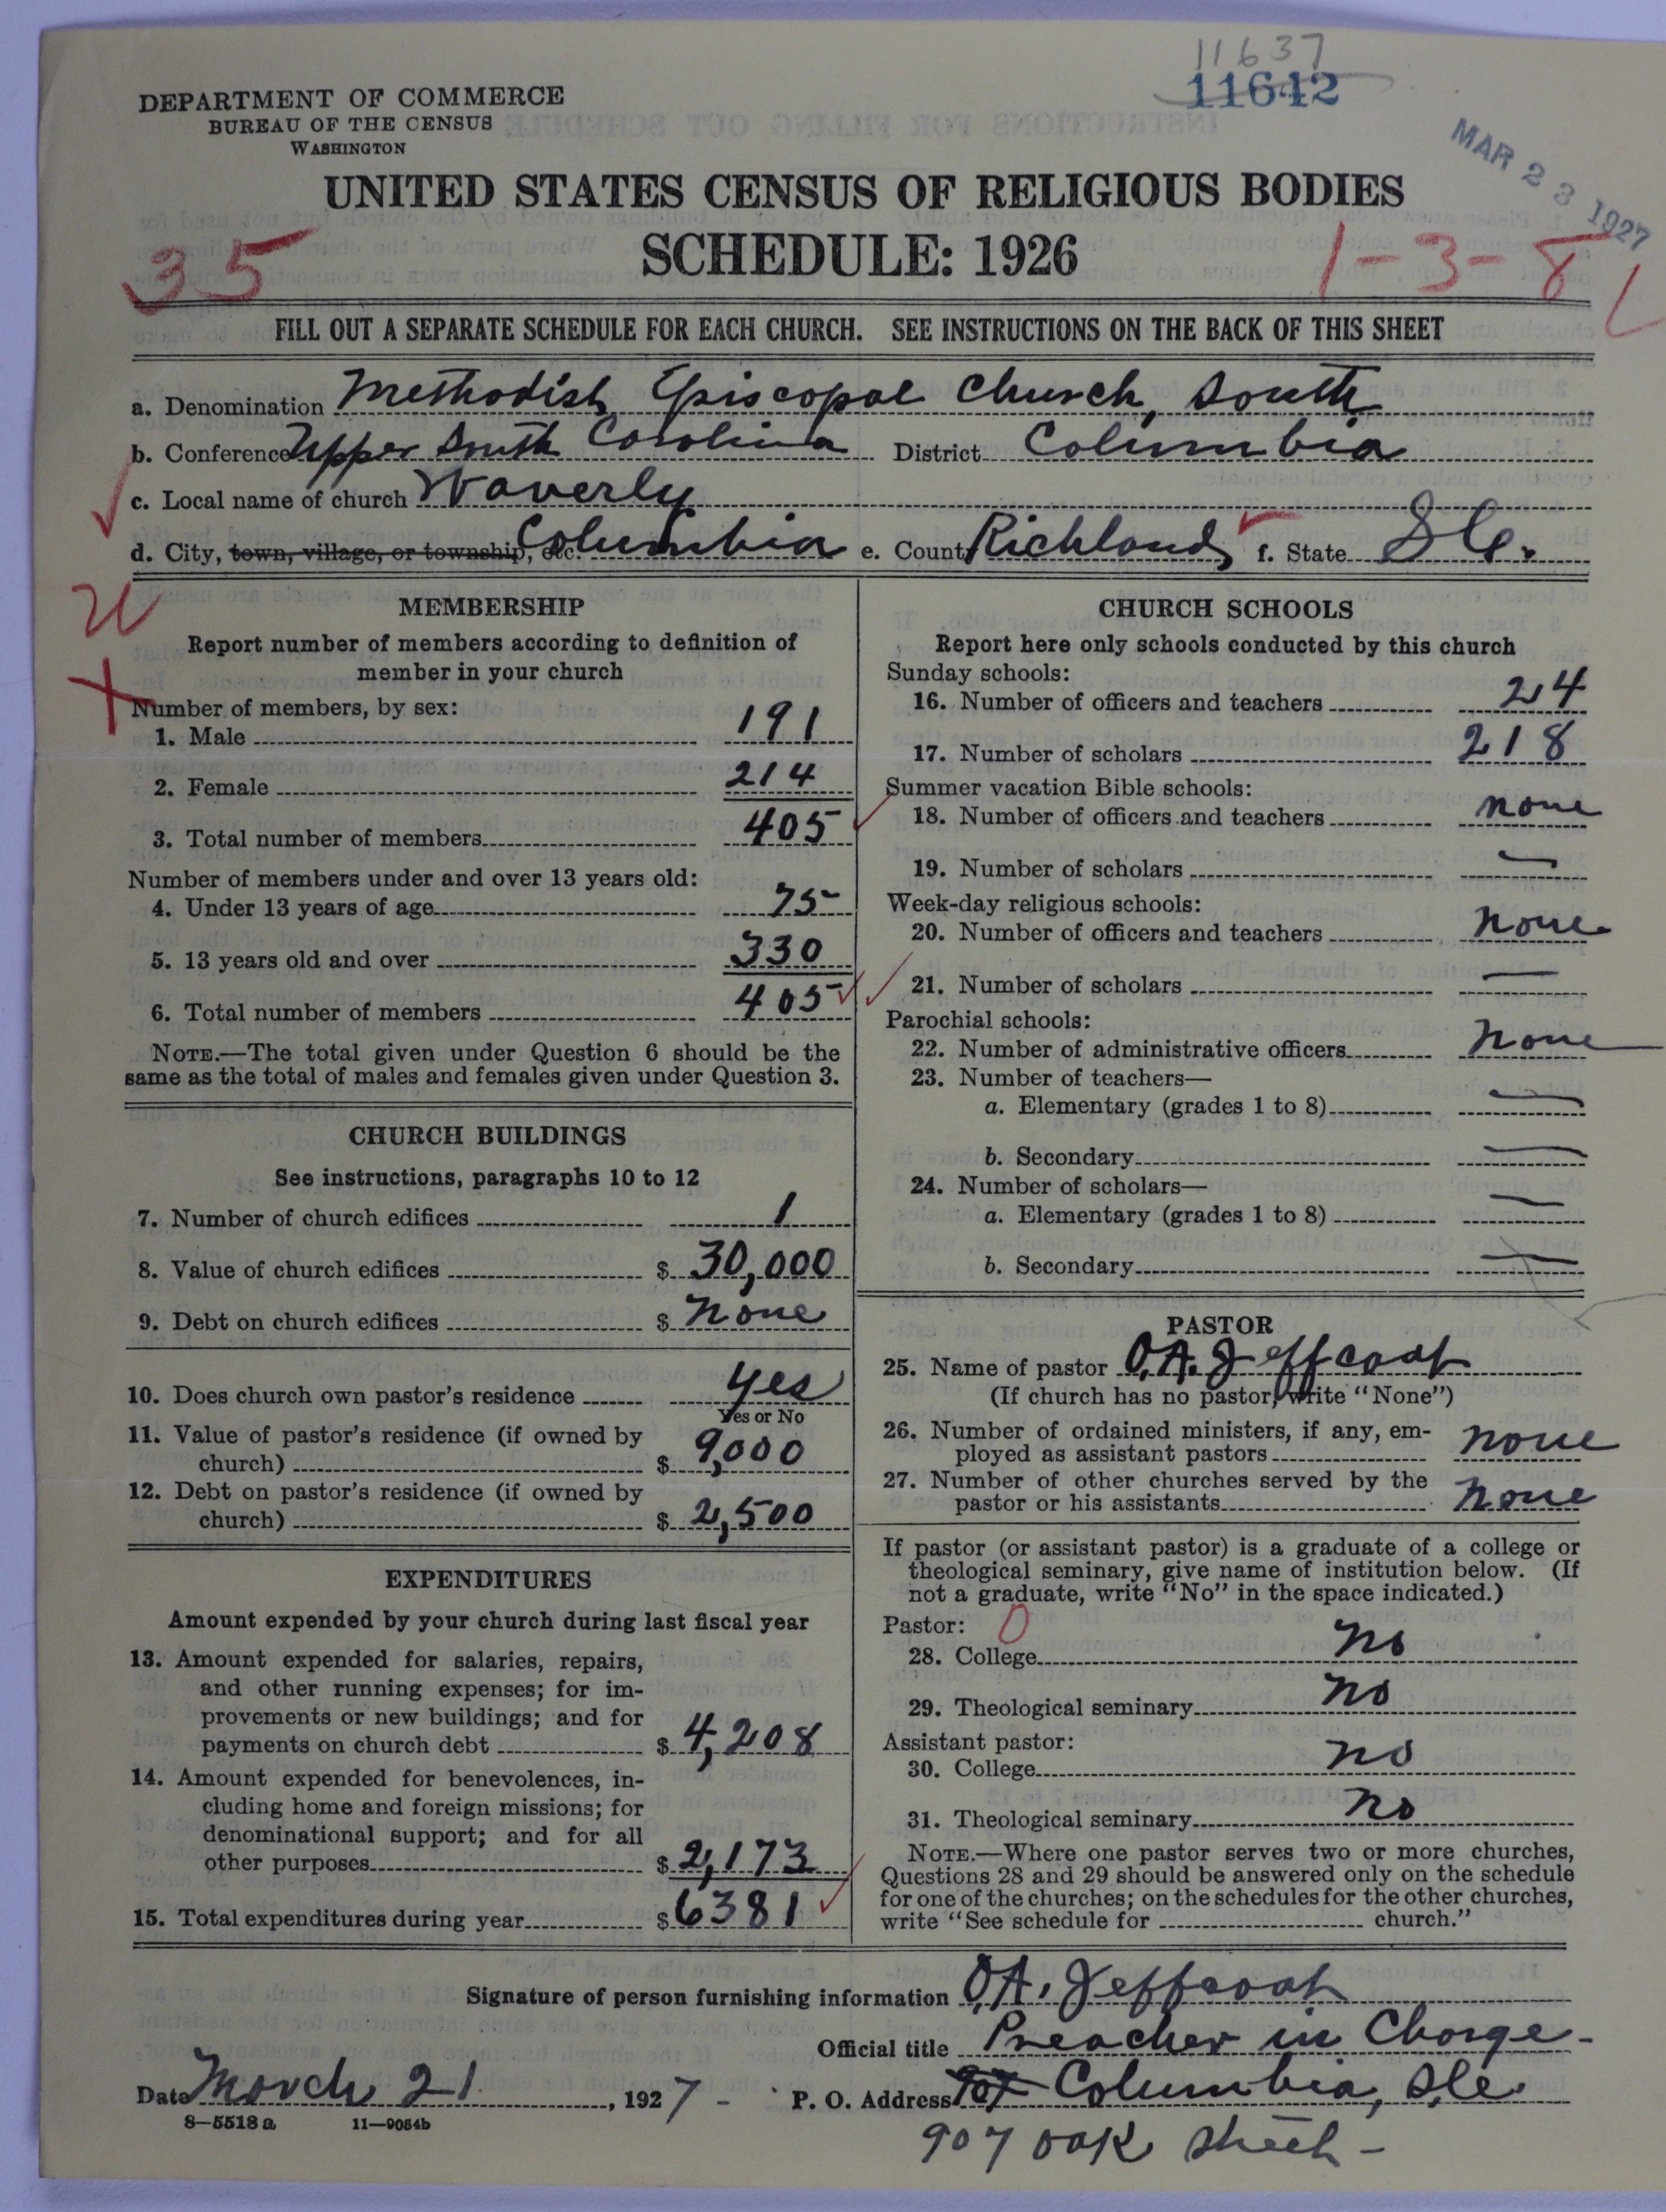 11637
11642
DEPARTMENT OF COMMERCE
BUREAU OF THE CENSUS
WASHINGTON
MAR 23 1927
UNITED STATES CENSUS OF RELIGIOUS BODIES
SCHEDULE: 1926
35
1-3-8
FILL OUT A SEPARATE SCHEDULE FOR EACH CHURCH. SEE INSTRUCTIONS ON THE BACK OF THIS SHEET
a. Denomination Methodist Episcopal Church, South
b. Conference Upper South Carolina District Columbia
c. Local name of church Waverly
d. City, town, village, or township, etc. Columbia e. County Richland f. State S.C.
MEMBERSHIP
Report number of members according to definition of
member in your church
Number of members, by sex:
1. Male 191
2. Female 214
3. Total number of members 405
Number of members under and over 13 years old:
4. Under 13 years of age 75
5. 13 years old and over 330
6. Total number of members 405
NOTE.—The total given under Question 6 should be the
same as the total of males and females given under Question 3.
CHURCH BUILDINGS
See instructions, paragraphs 10 to 12
7. Number of church edifices 1
8. Value of church edifices $ 30,000
9. Debt on church edifices $ None
10. Does church own pastor's residence yes
Yes or No
11. Value of pastor's residence (if owned by
church) $ 9,000
12. Debt on pastor's residence (if owned by
church) $ 2,500
EXPENDITURES
Amount expended by your church during last fiscal year
13. Amount expended for salaries, repairs,
and other running expenses; for im-
provements or new buildings; and for
payments on church debt $ 4,208
14. Amount expended for benevolences, in-
cluding home and foreign missions; for
denominational support; and for all
other purposes $ 2,173
15. Total expenditures during year $ 6381
CHURCH SCHOOLS
Report here only schools conducted by this church
Sunday schools:
16. Number of officers and teachers 24
17. Number of scholars 218
Summer vacation Bible schools:
18. Number of officers and teachers none
19. Number of scholars —
Week-day religious schools:
20. Number of officers and teachers None
21. Number of scholars —
Parochial schools:
22. Number of administrative officers None
23. Number of teachers—
a. Elementary (grades 1 to 8) —
b. Secondary —
24. Number of scholars—
a. Elementary (grades 1 to 8) —
b. Secondary —
PASTOR
25. Name of pastor O.A. Jeffcoat
(If church has no pastor, write "None")
26. Number of ordained ministers, if any, em-
ployed as assistant pastors none
27. Number of other churches served by the
pastor or his assistants None
If pastor (or assistant pastor) is a graduate of a college or
theological seminary, give name of institution below. (If
not a graduate, write "No" in the space indicated.)
Pastor: 0
28. College no
29. Theological seminary no
Assistant pastor:
30. College no
31. Theological seminary no
NOTE.—Where one pastor serves two or more churches,
Questions 28 and 29 should be answered only on the schedule
for one of the churches; on the schedules for the other churches,
write "See schedule for church."
Signature of person furnishing information O.A. Jeffcoat
Official title Preacher in Charge-
Date March 21, 1927 - P. O. Address 907 Columbia, S.C.
8—5518a 11—9054b
907 Oak Street -